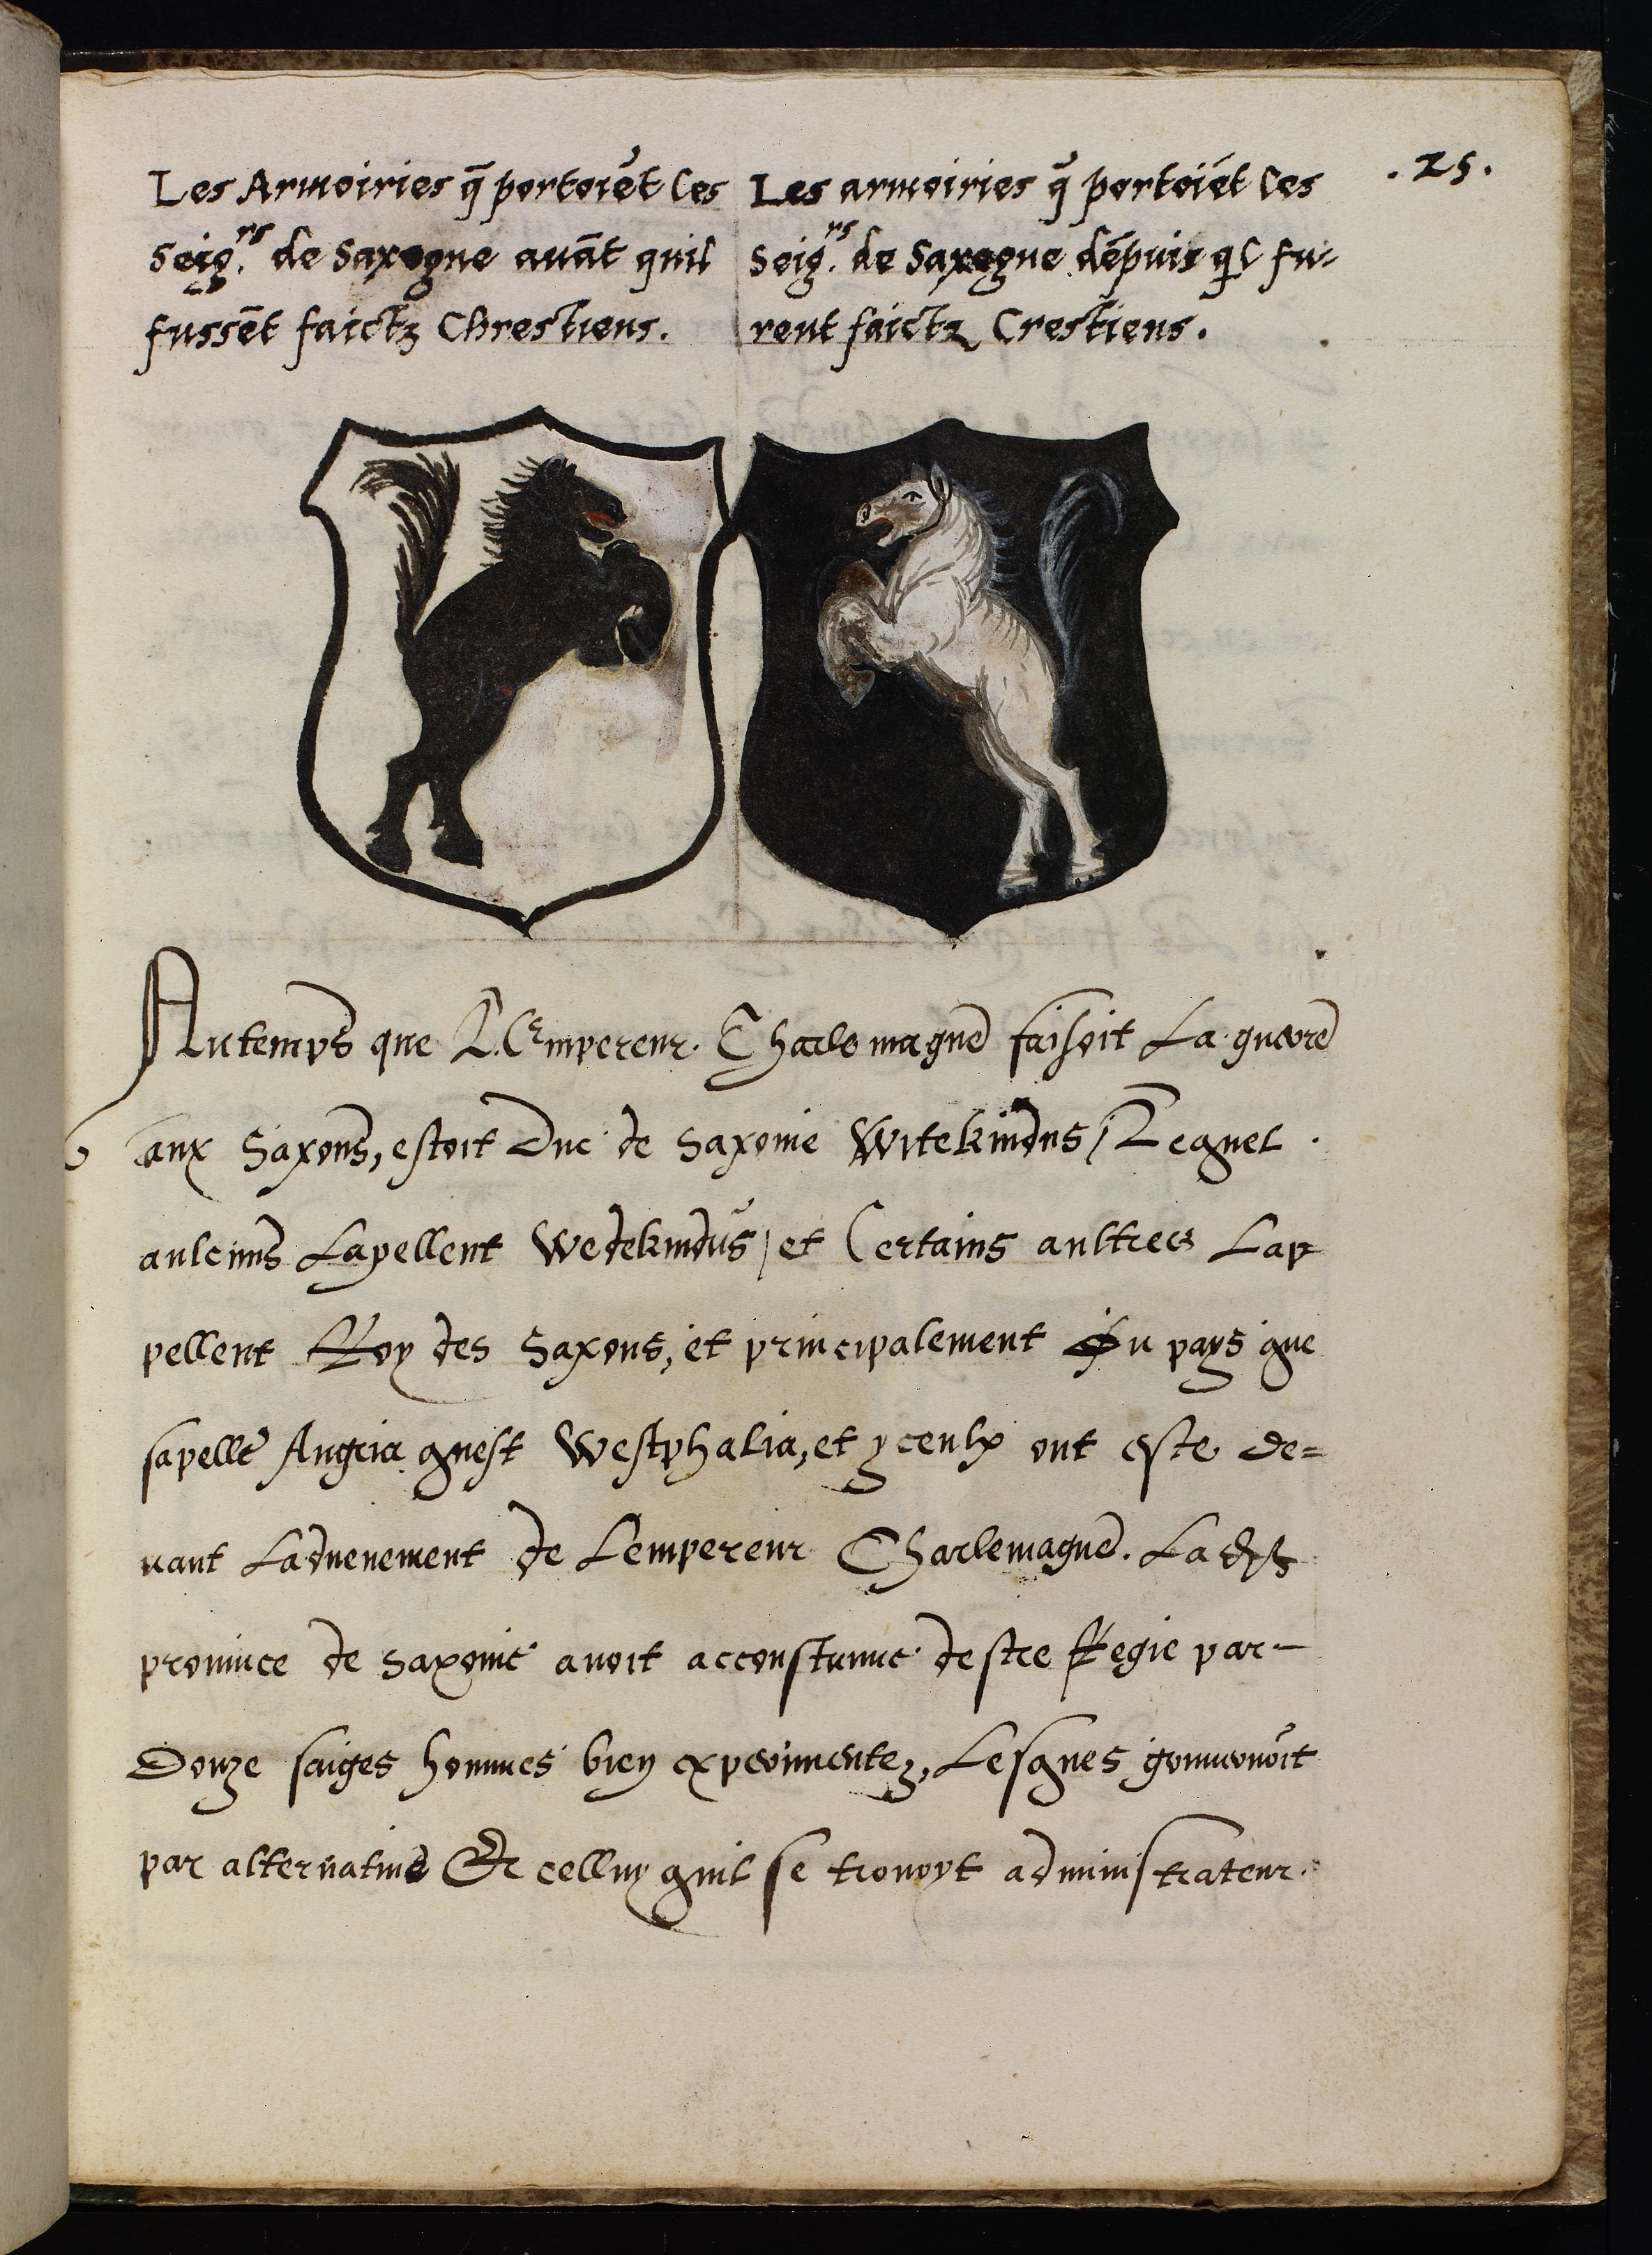 .25.
Les Armoiries q̃ portoiẽt les
Seig.rs de Saxogne auãt quil
fussẽt faictz Chrestiens.
Les armoiries q̃ portoiẽt les
Seig.rs de Saxogne dépuis ql fu-
rent faictz Crestiens.
Au temps que L.Empereur. Charlemagne faisoit La guerre
aux Saxons, estoit Duc de Saxonie Witekindus / Lequel.
aulcuns Lapellent Wedekindus / et Certains aultres Lap
pellent Roy des Saxons, et principalement Du pays que
sapelle Angria quest Westphalia, et yceulx ont este de=
uant Laduenement de Lempereur Charlemagne. La
prouince de Saxonie auoit accoustume destre Regie par-
Douze saiges hommes bien experimentez, Lesques gouuernoit
par alternatiue Et celluy quil se trouoyt administrateur.